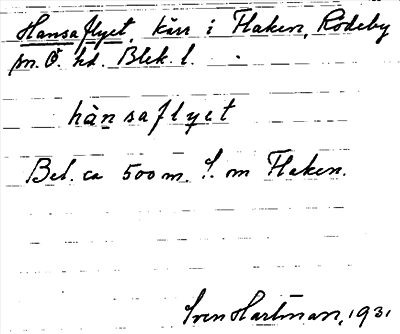 Hansaflyet, kärr i Flaken, Rödeby
sn. Ö. hd. Blek. l.
hànsaflyet
Bel. ca 500 m. S. om Flaken.
Sven Hartman, 1931